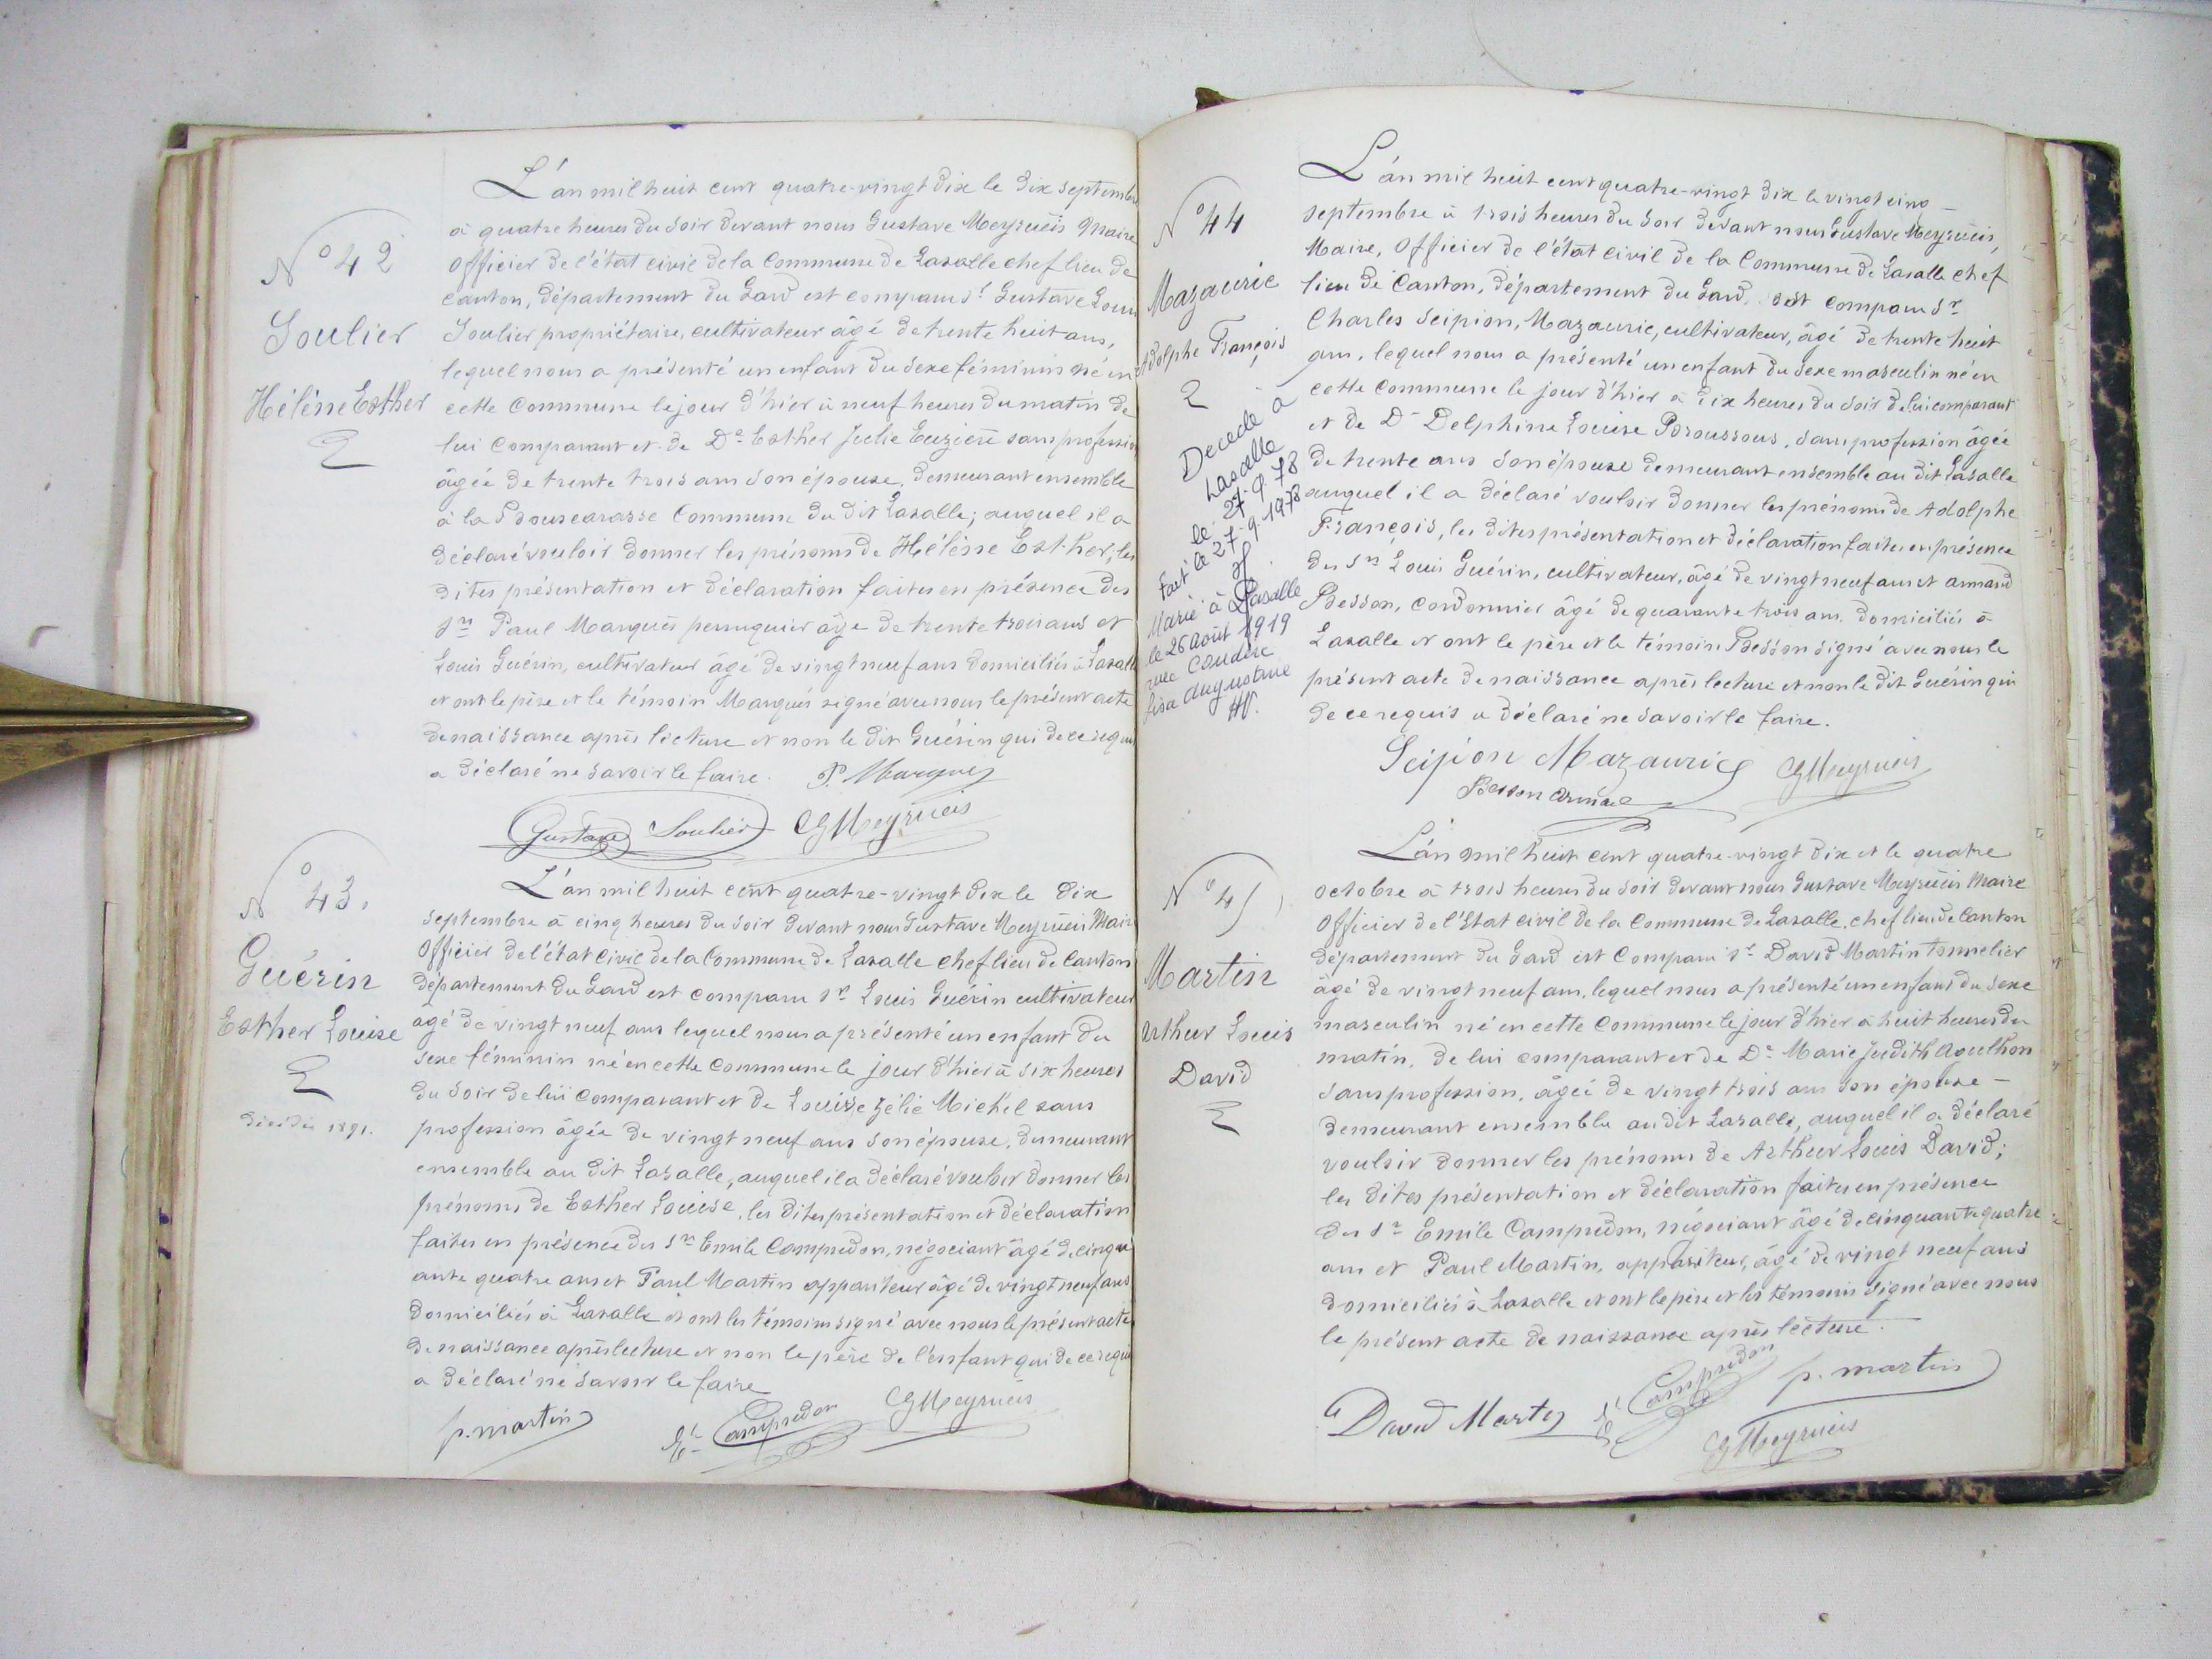 N° 42
Soulier
Hélène Esther
L'an mil huit cent quatre-vingt dix le dix septembre
à quatre heures du soir devant nous Gustave Meyrueis Maire
officier de l'état civil de la Commune de Lasalle chef lieu de
canton, département du Gard est comparu Sr Gustave Louis
Soulier propriétaire, cultivateur âgé de trente huit ans,
lequel nous a présenté un enfant du sexe féminin né en
cette Commune le jour d'hier à neuf heures du matin de
lui comparant et de De Esther Julie Euzière sans profession
âgée de trente trois ans son épouse, demeurant ensemble
à la Commune du dit Lasalle; auquel il a
déclaré vouloir donner les prénoms de Hélène Esther, les
dites présentation et déclaration faites en présence des
Srs Paul Marquès perruquier âgé de trente trois ans et
Louis Guérin, cultivateur âgé de vingt neuf ans domiciliés à Lasalle
et ont le père et le témoin Marquès signé avec nous le présent acte
de naissance après lecture et non le dit Guérin qui de ce requis
a déclaré ne savoir le faire. P. Marquès
Gustave Soulier GMeyrueis
N° 43.
Guérin
Esther Louise
décédée 1891.
L'an mil huit cent quatre-vingt dix le dix
septembre à cinq heures du soir devant nous Gustave Meyrueis Maire
Officier de l'état civil de la Commune de Lasalle chef lieu de Canton
département du Gard est comparu Sr Louis Guérin cultivateur
agé de vingt neuf ans lequel nous a présenté un enfant du
sexe féminin né en cette Commune le jour d'hier à six heures
du soir de lui comparant et de Louise Zélie Michel sans
profession âgée de vingt neuf ans son épouse, demeurant
ensemble au dit Lasalle, auquel il a déclaré vouloir donner les
prénoms de Esther Louise, les dites présentation et déclaration
faites en présence des Srs Emile Campredon, négociant âgé de cinqu
ante quatre ans et Paul Martin appariteur âgé de vingt neuf ans
domiciliés à Lasalle et ont les témoins signé avec nous le présent acte
de naissance après lecture et non le père de l'enfant qui de ce requis
a déclaré ne savoir le faire
p. martin Ele Campredon GMeyrueis
N° 44
Mazauric
Adolphe François
Decede à
Lasalle
le 27-9-78
Fait le 27-9-1978
Marié à Lasalle
le 26 août 1919
avec Coudere
Lisa Augustine
L'án mil huit cent quatre-vingt dix le vingt cinq
septembre à trois heures du soir devant nous Gustave Meyrueis,
Maire, Officier de l'état civil de la Commune de Lasalle chef
lieu de Canton, département du Gard, est comparu Sr
Charles Scipion, Mazauric, cultivateur, âgé de trente huit
ans, lequel nous a présenté un enfant du sexe masculin né en
cette Commune le jour d'hier à dix heures du soir de lui comparant
et de De Delphine Louise Broussous, sans profession âgée
de trente ans son épouse demeurant ensemble au dit Lasalle
auquel il a déclaré vouloir donner les prénoms de Adolphe
François, les dites présentation et déclaration faites en présence
des Srs Louis Guérin, cultivateur, âgé de vingt neuf ans et armand
Besson, cordonnier âgé de quarante trois ans domiciliés à
Lasalle et ont le père et le témoin Besson signé avec nous le
présent acte de naissance après lecture et non le dit Guérin qui
de ce requis a déclaré ne savoir le faire.
Scipion Mazauric GMeyrueis
Besson armand
N° 45
Martin
Arthur Louis
David
L'án mil huit cent quatre-vingt dix et le quatre
octobre à trois heures du soir devant nous Gustave Meyrueis Maire
Officier de l'Etat civil de la Commune de Lasalle, chef lieu de Canton
département du Gard est comparu Sr David Martin tonnelier
âgé de vingt neuf ans, lequel nous a présenté un enfant du sexe
masculin né en cette Commune le jour d'hier à huit heures du
matin, de lui comparant et de De Marie Judith Agulhon
sans profession, âgée de vingt trois ans son épouse -
demeurant ensemble au dit Lasalle, auquel il a déclaré
vouloir donner les prénoms de Arthur Louis David;
les dites présentation et déclaration faites en présence
des Srs Emile Campredon, négociant âgé de cinquante quatre
ans et Paul Martin, appariteur, âgé de vingt neuf ans
domiciliés à Lasalle et ont le père et les témoins signé avec nous
le présent acte de naissance après lecture.
David Martin Ele Campredon p. martin
GMeyrueis